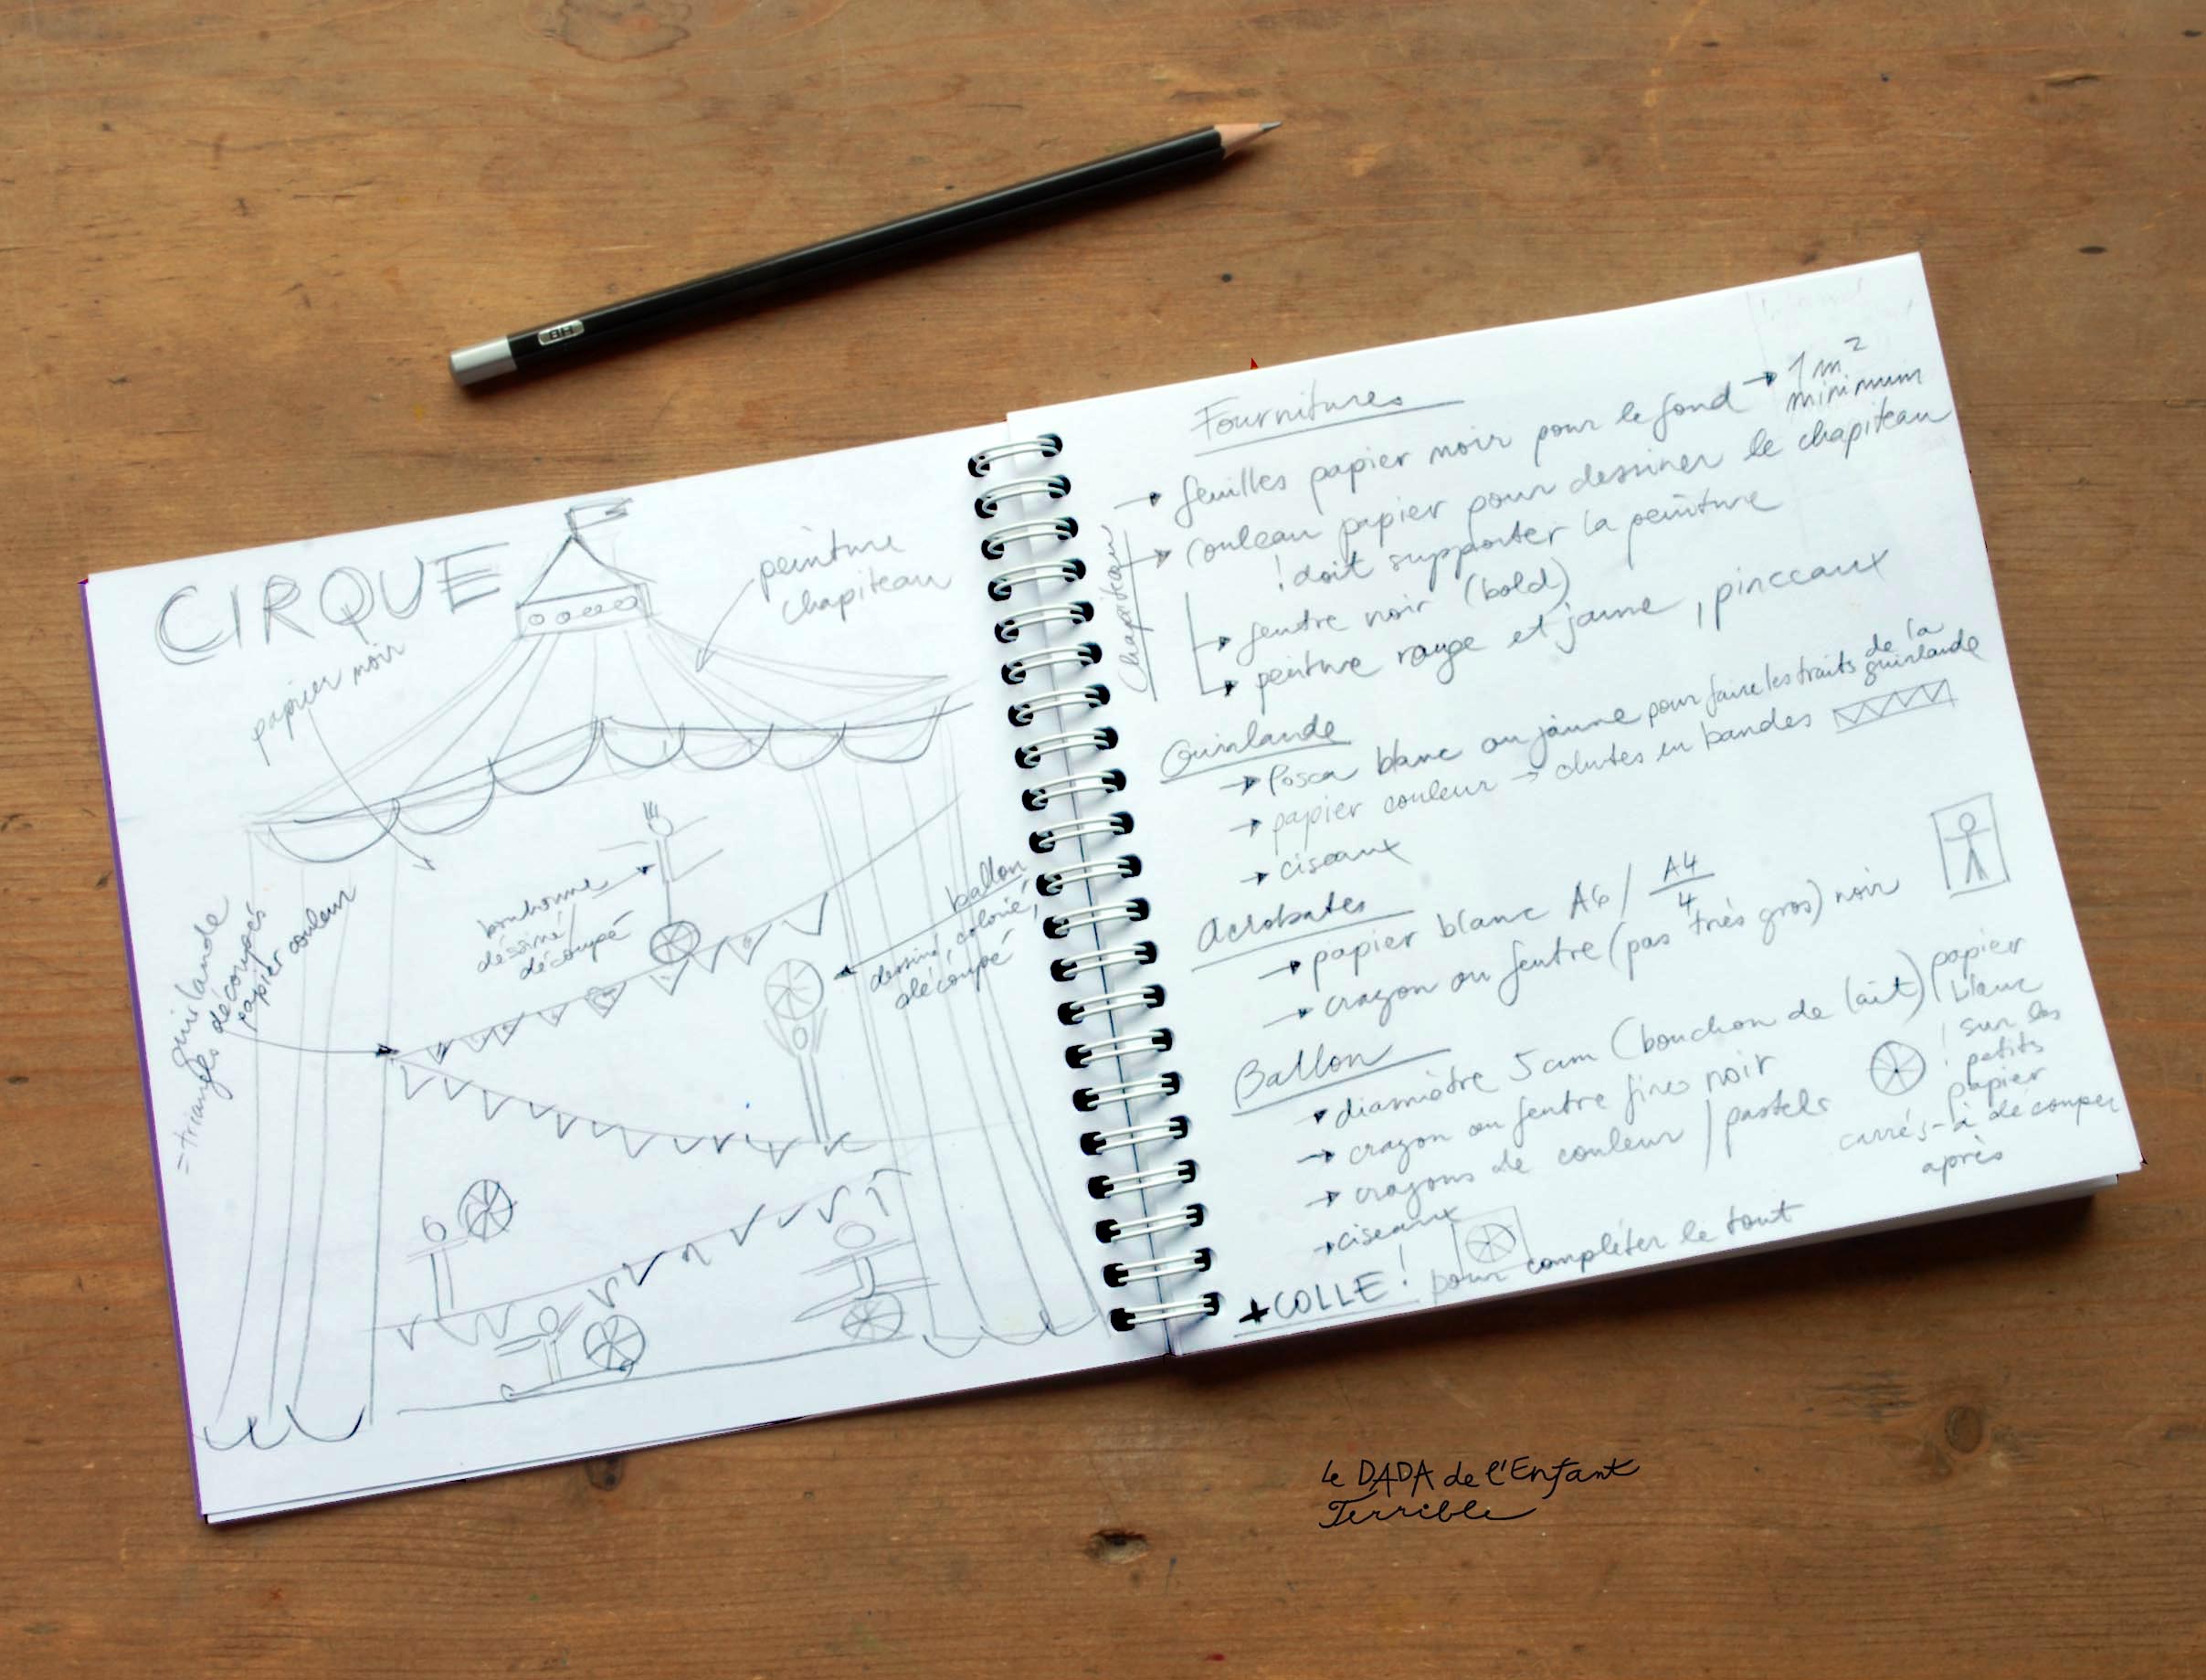 HB
CIRQUE
papier noir
peinture
chapiteau
bonhomme
dessiné/
découpé
ballon
dessiné, colorié,
découpé
guirlande
= triangles découpés
papier couleur
Fournitures
→ feuilles papier noir pour le fond → 1 m²
minimum
Chapiteau
→ rouleau papier pour dessiner le chapiteau
! doit supporter la peinture
→ feutre noir (bold)
→ peinture rouge et jaune, pinceaux
Guirlande
→ Posca blanc ou jaune pour faire les traits de la
guirlande
→ papier couleur → chutes en bandes
→ ciseaux
Acrobates
→ papier blanc A6 / A4/4
→ crayon ou feutre (pas très gros) noir
Ballon
→ diamiètre 5 cm (bouchon de lait) / papier
blanc
→ crayon ou feutre fines noir
→ crayons de couleur / pastels
→ ciseaux
! sur les
petits
papier
carrés - à découper
après
+ COLLE! pour compléter le tout
Le DADA de l'Enfant
Terrible